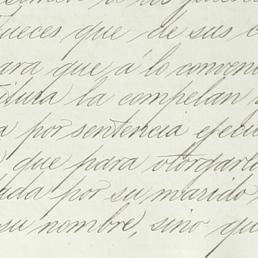 ueces que de sus c
ara que á lo conveni
titura la compelan
a por sentencia ejecu
que para otorgarla
ida por su marido
su nombre, sino qu